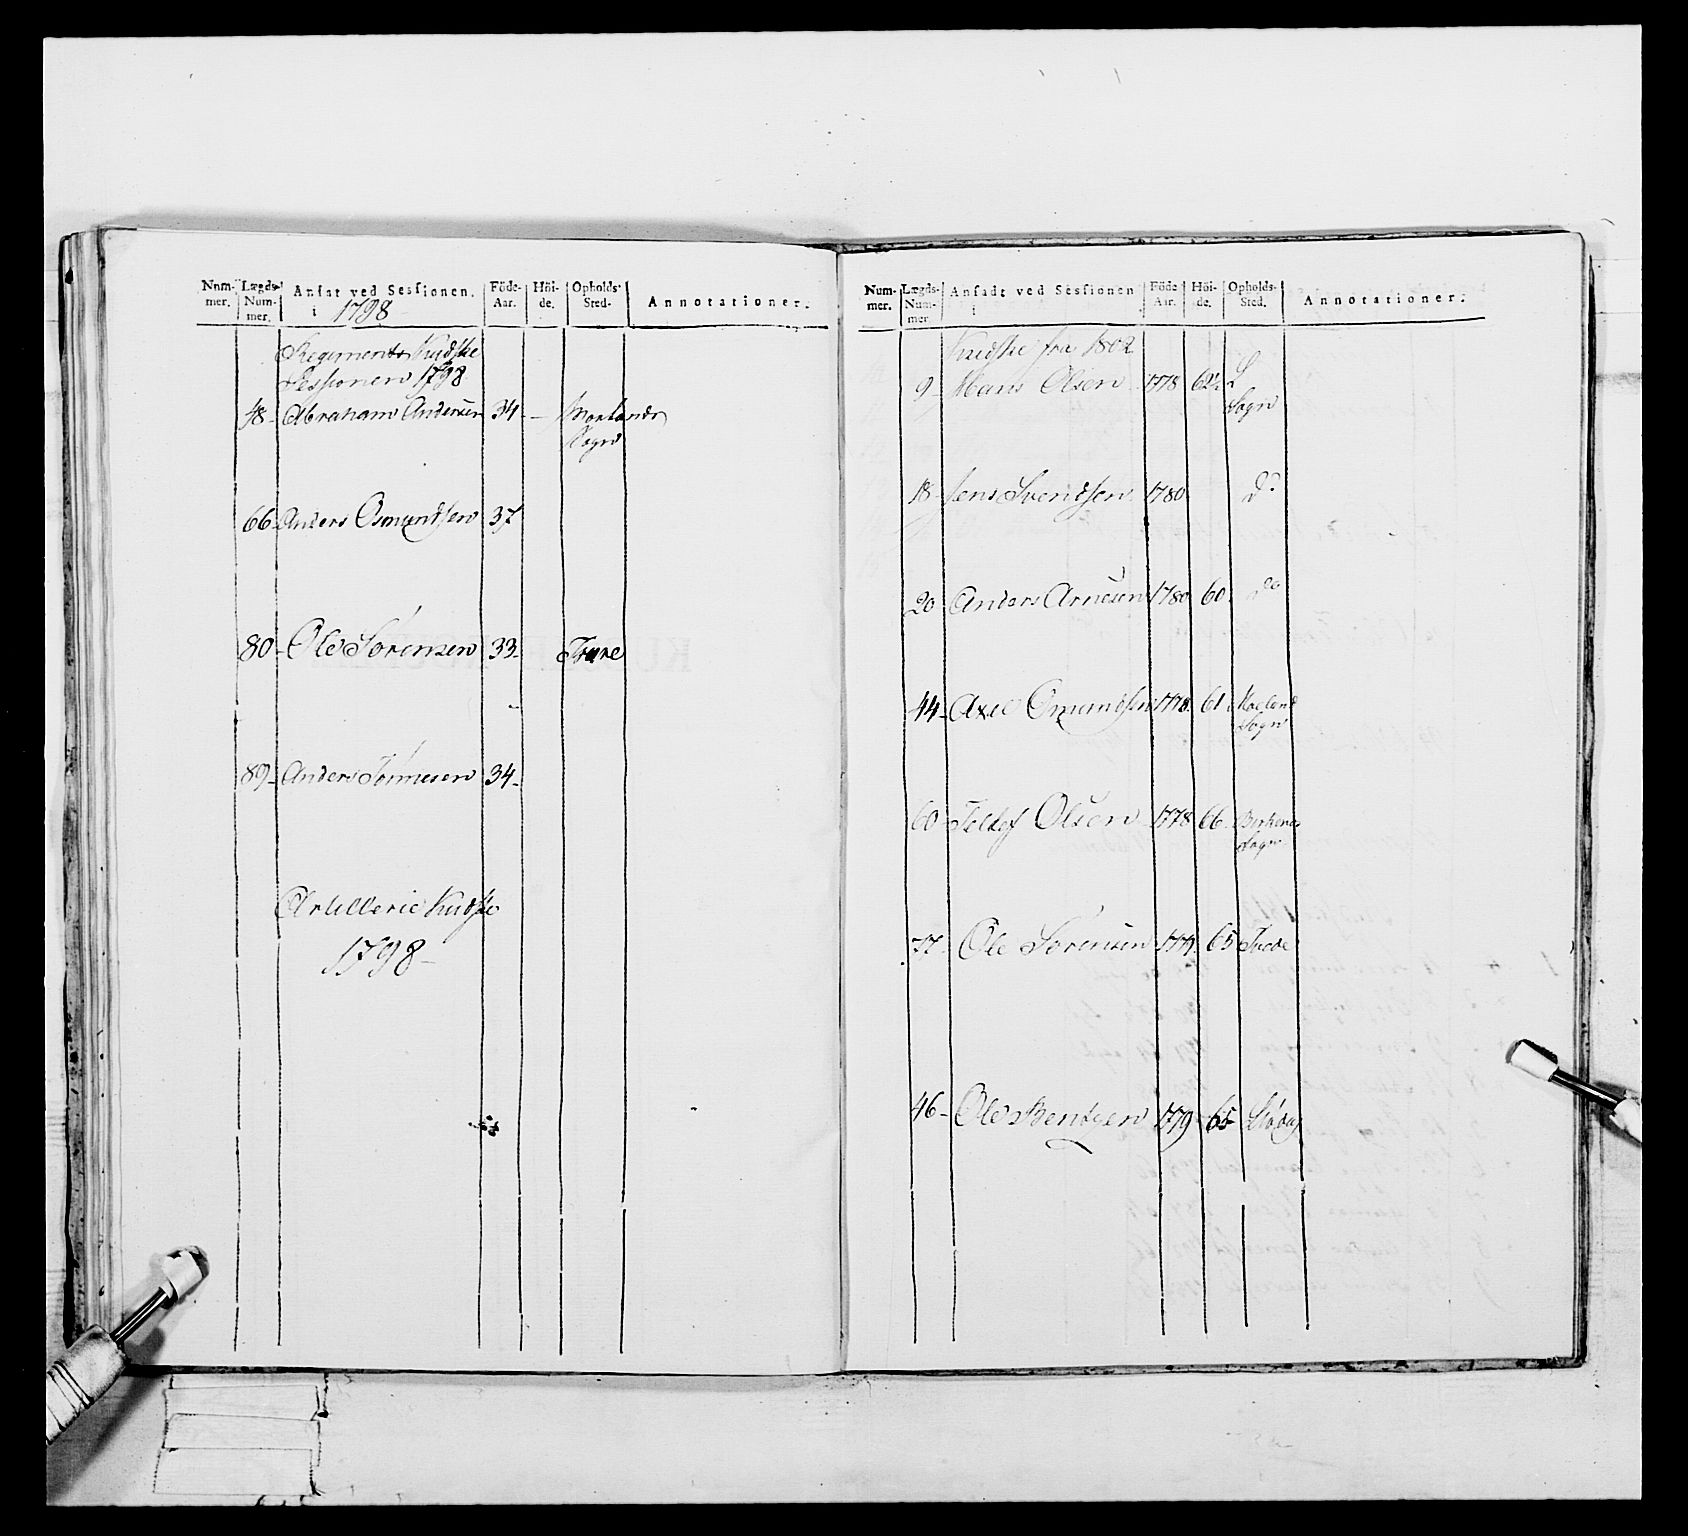 Num-
mer.
Lægds-
Num-
mer.
Ansat ved Sessionen.
i 1798
Föde-
Aar.
Höi-
de.
Opholds-
Sted.
Annotationer.
Regiments Kudske
Sessionen 1798
48 Abraham Andersen 34 - Moelands
Sogn
66 Anders Osmundsen 37
80 Ole Sörensen 33
89 Anders Tönnesen 34
Artillerie Kudske
1798
Num-
mer.
Lægds-
Num-
mer.
Ansadt ved Sessionen
i
Föde-
Aar.
Höi-
de.
Opholds-
Sted.
Annotationer.
Kudske fra 1802
9 Hans Olsen 1778
Sogn
18 Jens Svendsen 1780 do
20 Anders Arnesen 1780 60 do
44 Axel Omundsen 1778 61 Moeland
Sogn
60 Tellef Olsen 1778 66 Birkenes
Sogn
77 Ole Sörensen 1779 65 Tvede
46 Ole Bentsen 1779 65